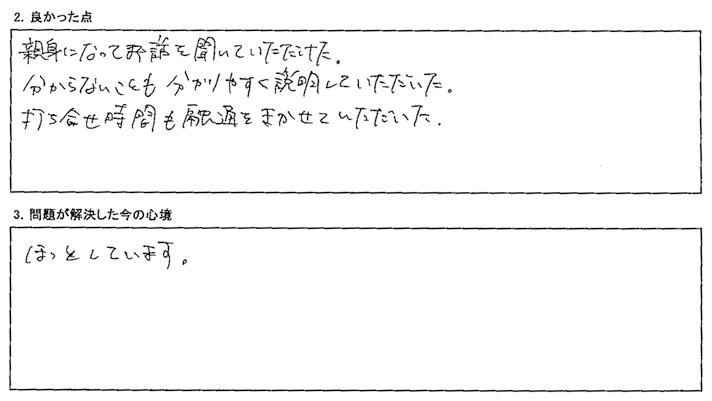 2. 良かった点
親身になってお話を聞いていただけた。
分からないことも分かりやすく説明していただいた。
打ち合せ時間も融通をきかせていただいた.
3. 問題が解決した今の心境
ほっとしています。